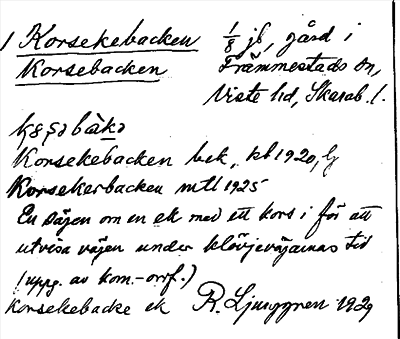 1 Korsekebacken 1/8 jb, gård i
Korsebacken Främmestads sn,
Viste hd, Skarab. l.
Korsekebacken bek, kb 1920, lj
Korsekerbacken mtl 1925
En sägen om en ek med ett kors i för att
utvisa vägen under klövjevägarnas tid
(uppg. av kom.-ordf.)
Korsekebacke ek R. Ljunggren 1929